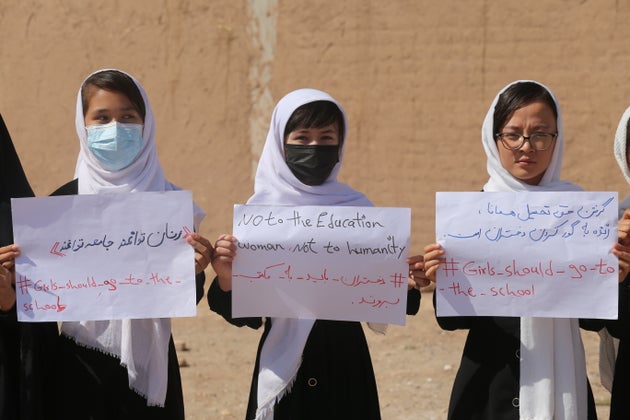 «زنان توانمند جامعه توانمند»
#Girls_should_go_to_the_
school
NO to the Education
woman, not to humanity
#دختران_باید_به_مکتب
بروند.
گرفتن حق تحصیل همانا،
زنده به گور کردن دختران است.
#Girls_should_go_to
-the_school